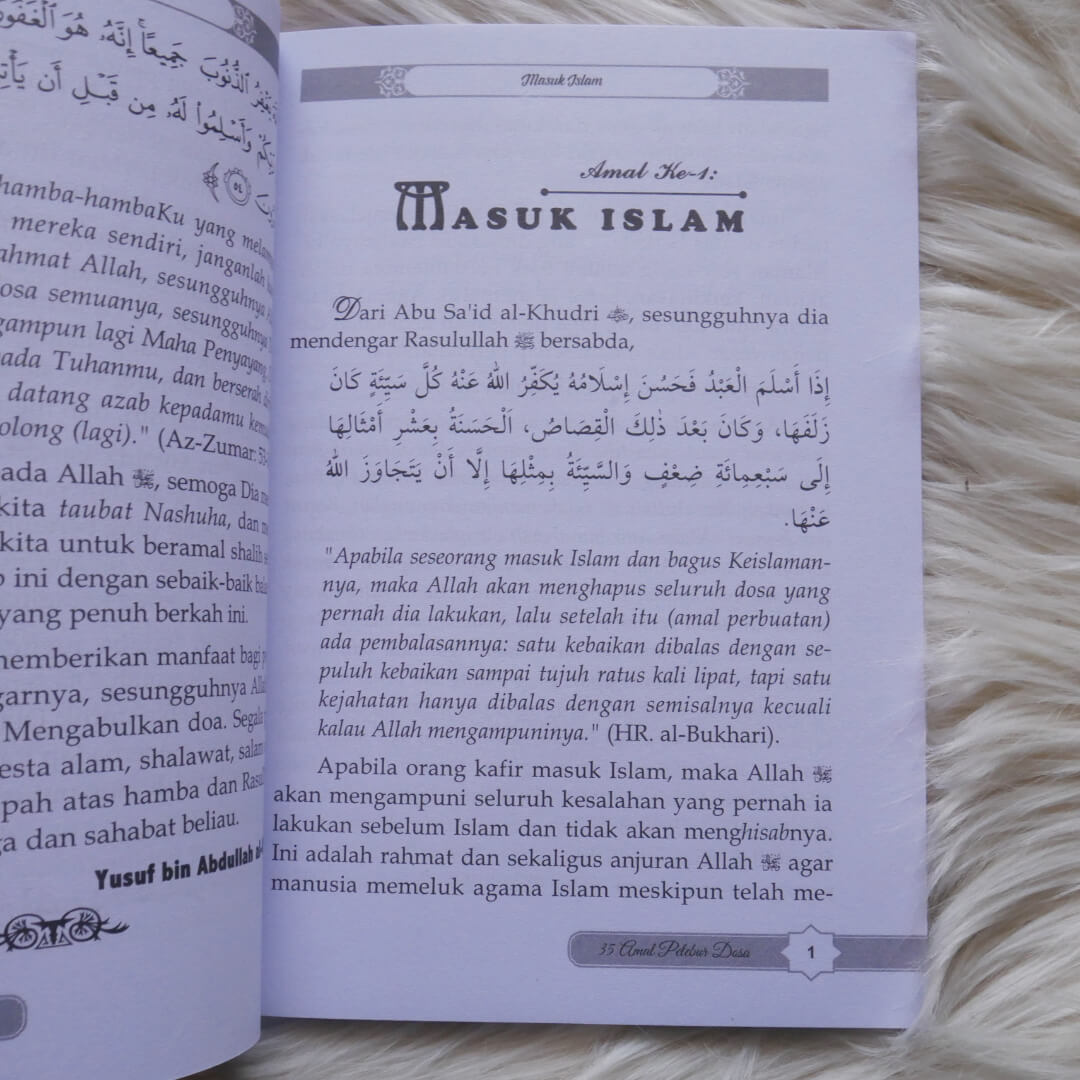 يَغْفِرُ ٱلذُّنُوبَ جَمِيعًا إِنَّهُۥ هُوَ ٱلْغَفُورُ
وَأَسْلِمُوا۟ لَهُۥ مِن قَبْلِ أَن
٥٤
hamba-hambaKu yang
mereka sendiri, janganlah
Allah, sesungguhnya
semuanya, sesungguhnya
lagi Maha Penyayang
Tuhanmu, dan berserah
datang azab kepadamu
(lagi)." (Az-Zumar: 53-
Allah ﷻ, semoga Dia
kita taubat Nashuha, dan
kita untuk beramal shalih
ini dengan sebaik-baik
yang penuh berkah ini.
memberikan manfaat bagi
sesungguhnya Allah
Mengabulkan doa. Segala
alam, shalawat, salam
atas hamba dan
dan sahabat beliau.
Yusuf bin Abdullah
Masuk Islam
Amal Ke-1:
MASUK ISLAM
Dari Abu Sa'id al-Khudri ﵁, sesungguhnya dia
mendengar Rasulullah ﷺ bersabda,
إِذَا أَسْلَمَ الْعَبْدُ فَحَسُنَ إِسْلَامُهُ يُكَفِّرُ اللهُ عَنْهُ كُلَّ سَيِّئَةٍ كَانَ
زَلَفَهَا، وَكَانَ بَعْدَ ذٰلِكَ الْقِصَاصُ، اَلْحَسَنَةُ بِعَشْرِ أَمْثَالِهَا
إِلَى سَبْعِمِائَةِ ضِعْفٍ وَالسَّيِّئَةُ بِمِثْلِهَا إِلَّا أَنْ يَتَجَاوَزَ اللهُ
عَنْهَا.
"Apabila seseorang masuk Islam dan bagus Keislaman-
nya, maka Allah akan menghapus seluruh dosa yang
pernah dia lakukan, lalu setelah itu (amal perbuatan)
ada pembalasannya: satu kebaikan dibalas dengan se-
puluh kebaikan sampai tujuh ratus kali lipat, tapi satu
kejahatan hanya dibalas dengan semisalnya kecuali
kalau Allah mengampuninya." (HR. al-Bukhari).
Apabila orang kafir masuk Islam, maka Allah ﷻ
akan mengampuni seluruh kesalahan yang pernah ia
lakukan sebelum Islam dan tidak akan menghisabnya.
Ini adalah rahmat dan sekaligus anjuran Allah ﷻ agar
manusia memeluk agama Islam meskipun telah me-
35 Amal Pelebur Dosa
1